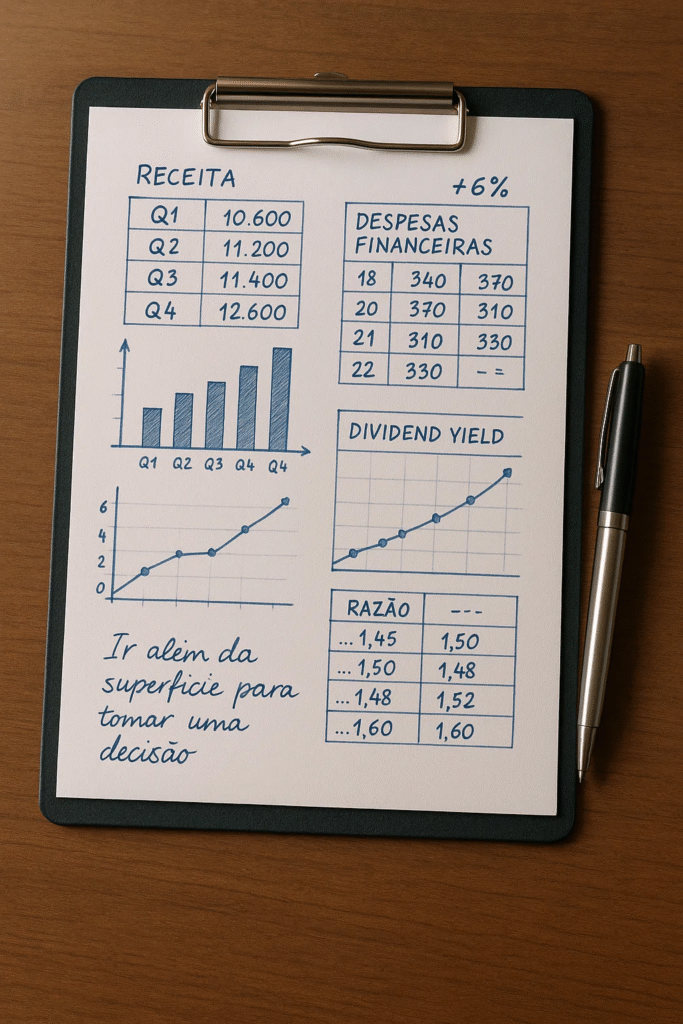 RECEITA
Q1 10.600
Q2 11.200
Q3 11.400
Q4 12.600
Q1 Q2 Q3 Q4 Q4
6
4
2
0
Ir além da
superfície para
tomar uma
decisão
+6%
DESPESAS
FINANCEIRAS
18 340 370
20 370 310
21 310 330
22 330 - =
DIVIDEND YIELD
RAZÃO ---
...1,45 1,50
...1,50 1,48
...1,48 1,52
...1,60 1,60